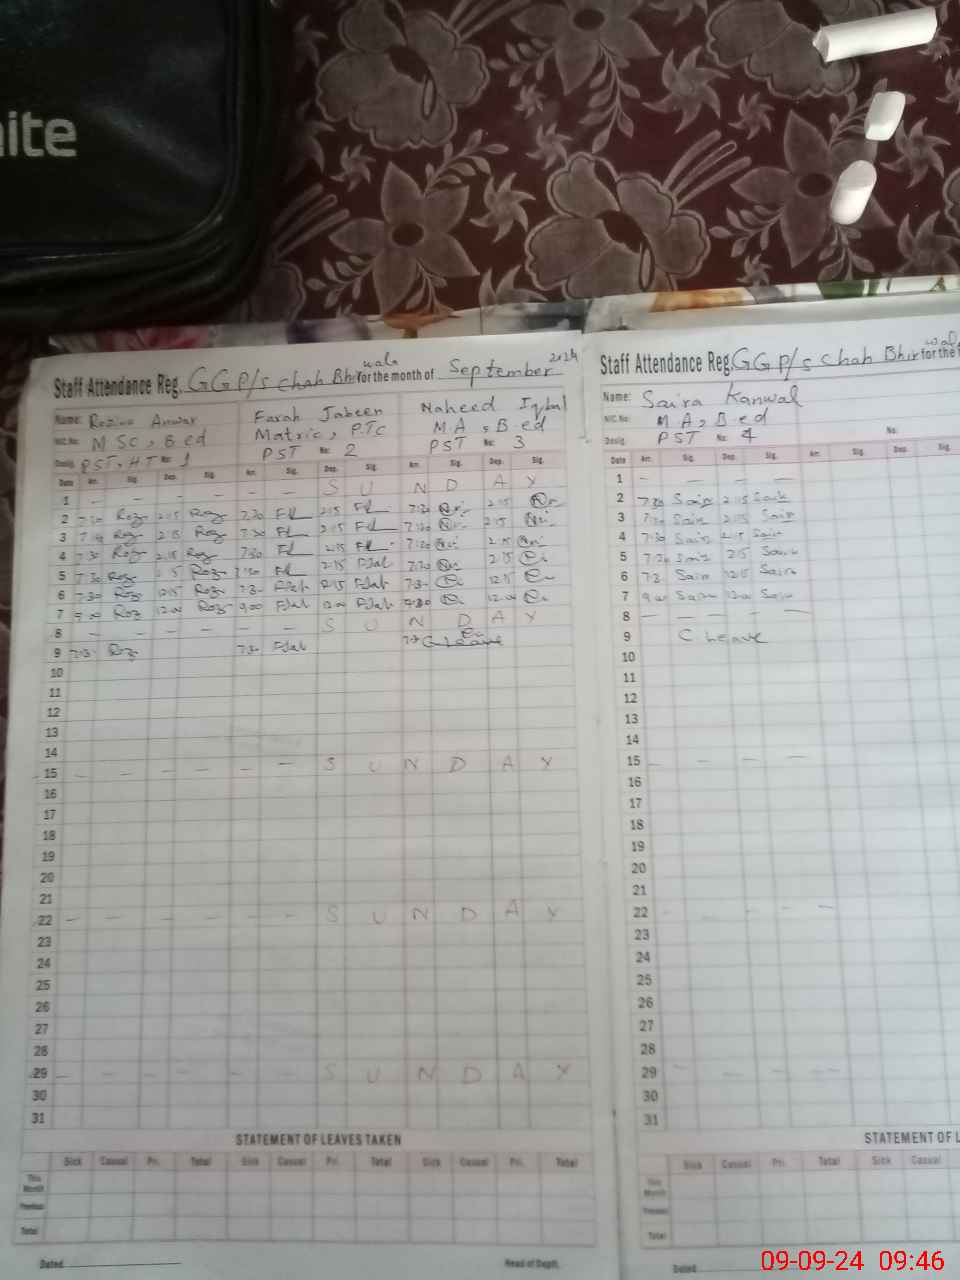 ite
Staff Attendance Reg. GGP/s Chah Bhir wala for the month of September 2024
Name: Rozina Anwar Farah Jabeen Naheed Iqbal
N.I.C. No: M SC, B ed Matric, PTC M.A, B.ed
Desig. PST, HT No: 1 PST No: 2 PST No: 3
Date Arr. Sig. Dep. Sig. Arr. Sig. Dep. Sig. Arr. Sig. Dep. Sig.
1 — — — — — — S U N D A Y
2 7:30 Roz 2:15 Roz 7:30 2:15 7:30 2:15
3 Roz 2:15 Roz 7:30 2:15 7:30 2:15
4 7:30 Roz 2:15 Roz 7:30 2:15 7:30 2:15
5 7:30 Roz Roz 7:30 2:15 7:30 2:15
6 7:30 Roz 12:15 Roz 7:30 12:15 7:30 12:15
7 9:00 Roz 12:00 Roz 9:00 12:00 12:00
8 — — — — — — S U N D A Y
9 7:30 Roz 7:30
10
11
12
13
14
15 — — — — — — S U N D A Y
16
17
18
19
20
21
22 — — — — — — S U N D A Y
23
24
25
26
27
28
29 — — — — — — S U N D A Y
30
31
STATEMENT OF LEAVES TAKEN
Sick Casual Pri. Total Sick Casual Pri. Total Sick Casual Pri. Total
This Month
Previous
Total
Dated Head of Deptt.
Staff Attendance Reg. GGP/s Chah Bhir wal for the
Name: Saira Kanwal
N.I.C. No: M A, B.ed No:
Desig. PST No: 4
Date Arr. Sig. Dep. Sig. Arr. Sig. Dep. Sig.
1 — — — —
2 7:30 Sair 2:15 Sair
3 7:30 Sair 2:15 Sair
4 7:30 Sair 2:15 Sair
5 7:30 Sair 2:15 Sair
6 Sair 12:15 Sair
7 9:00 Sair 12:00 Sair
8 — — — —
9 C Leave
10
11
12
13
14
15 — — — —
16
17
18
19
20
21
22 — — — —
23
24
25
26
27
28
29 — — — —
30
31
STATEMENT OF L
Sick Casual Pri. Total Sick Casual
This Month
Previous
Total
Dated
09-09-24 09:46